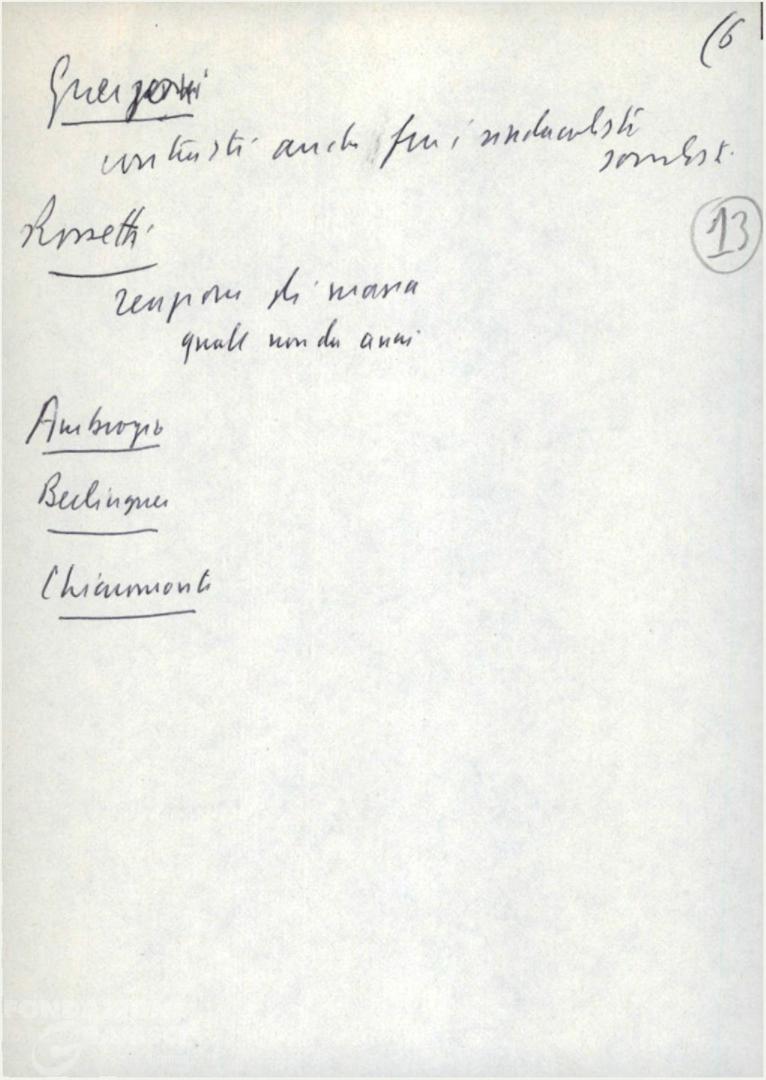 (6
Guerzoni
contrasti anche fra i sindacalisti
socialisti.
13
Rossetti
reazione di massa
quale non da anni
Ambrogio
Berlinguer
Chiaromonte
FONDAZIONE